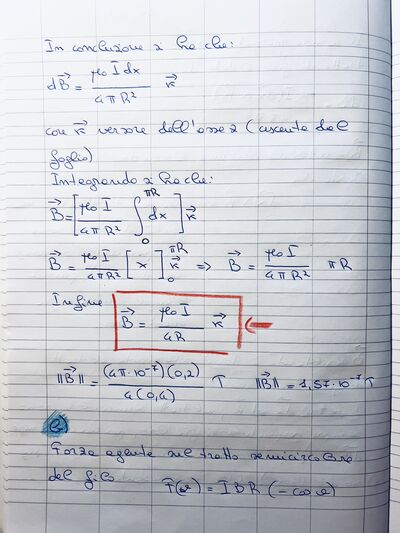 In conclusione si ha che:
d\vec{B} = \frac{μ_0 I dx}{4πR^2} \vec{k}
con \vec{k} versore dell'asse z (uscente dal
foglio)
Integrando si ha che:
\vec{B} = [\frac{μ_0 I}{4πR^2} \int_0^{πR} dx] \vec{k}
\vec{B} = \frac{μ_0 I}{4πR^2} [x]_0^{πR} \vec{k} => \vec{B} = \frac{μ_0 I}{4πR^2} πR
Infine \vec{B} = \frac{μ_0 I}{4R} \vec{k}
||\vec{B}|| = \frac{(4π·10^{-7})(0,2)}{4(0,4)} T ||\vec{B}|| = 1,57·10^{-7} T
Forza agente sul tratto semicircolare
del filo \vec{F}(θ) = I B R (-cos θ)